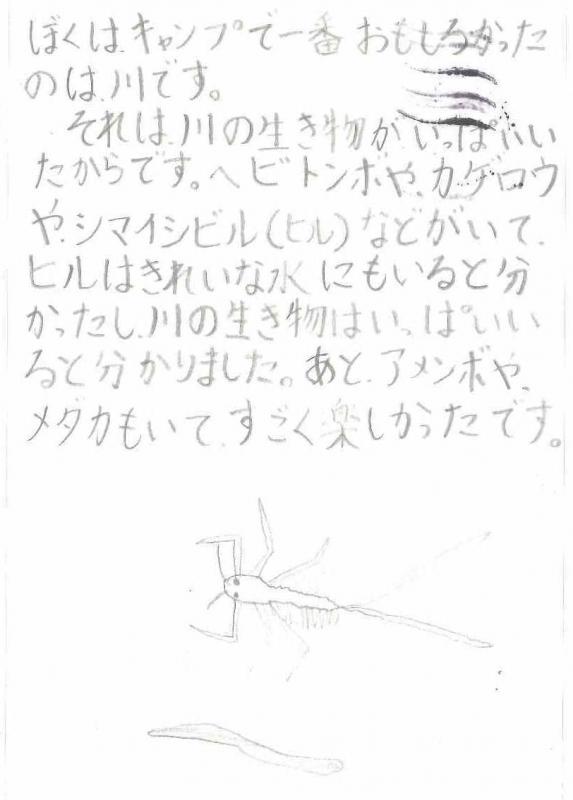 ぼくは、キャンプで一番おもしろかった
のは、川です。
それは、川の生き物が、いっぱいい
たからです。ヘビトンボや、カゲロウ
や、シマイシビル(ヒル)などがいて、
ヒルはきれいな水にもいると分
かったし、川の生き物はいっぱいい
ると分かりました。あと、アメンボや、
メダカもいて、すごく楽しかったです。